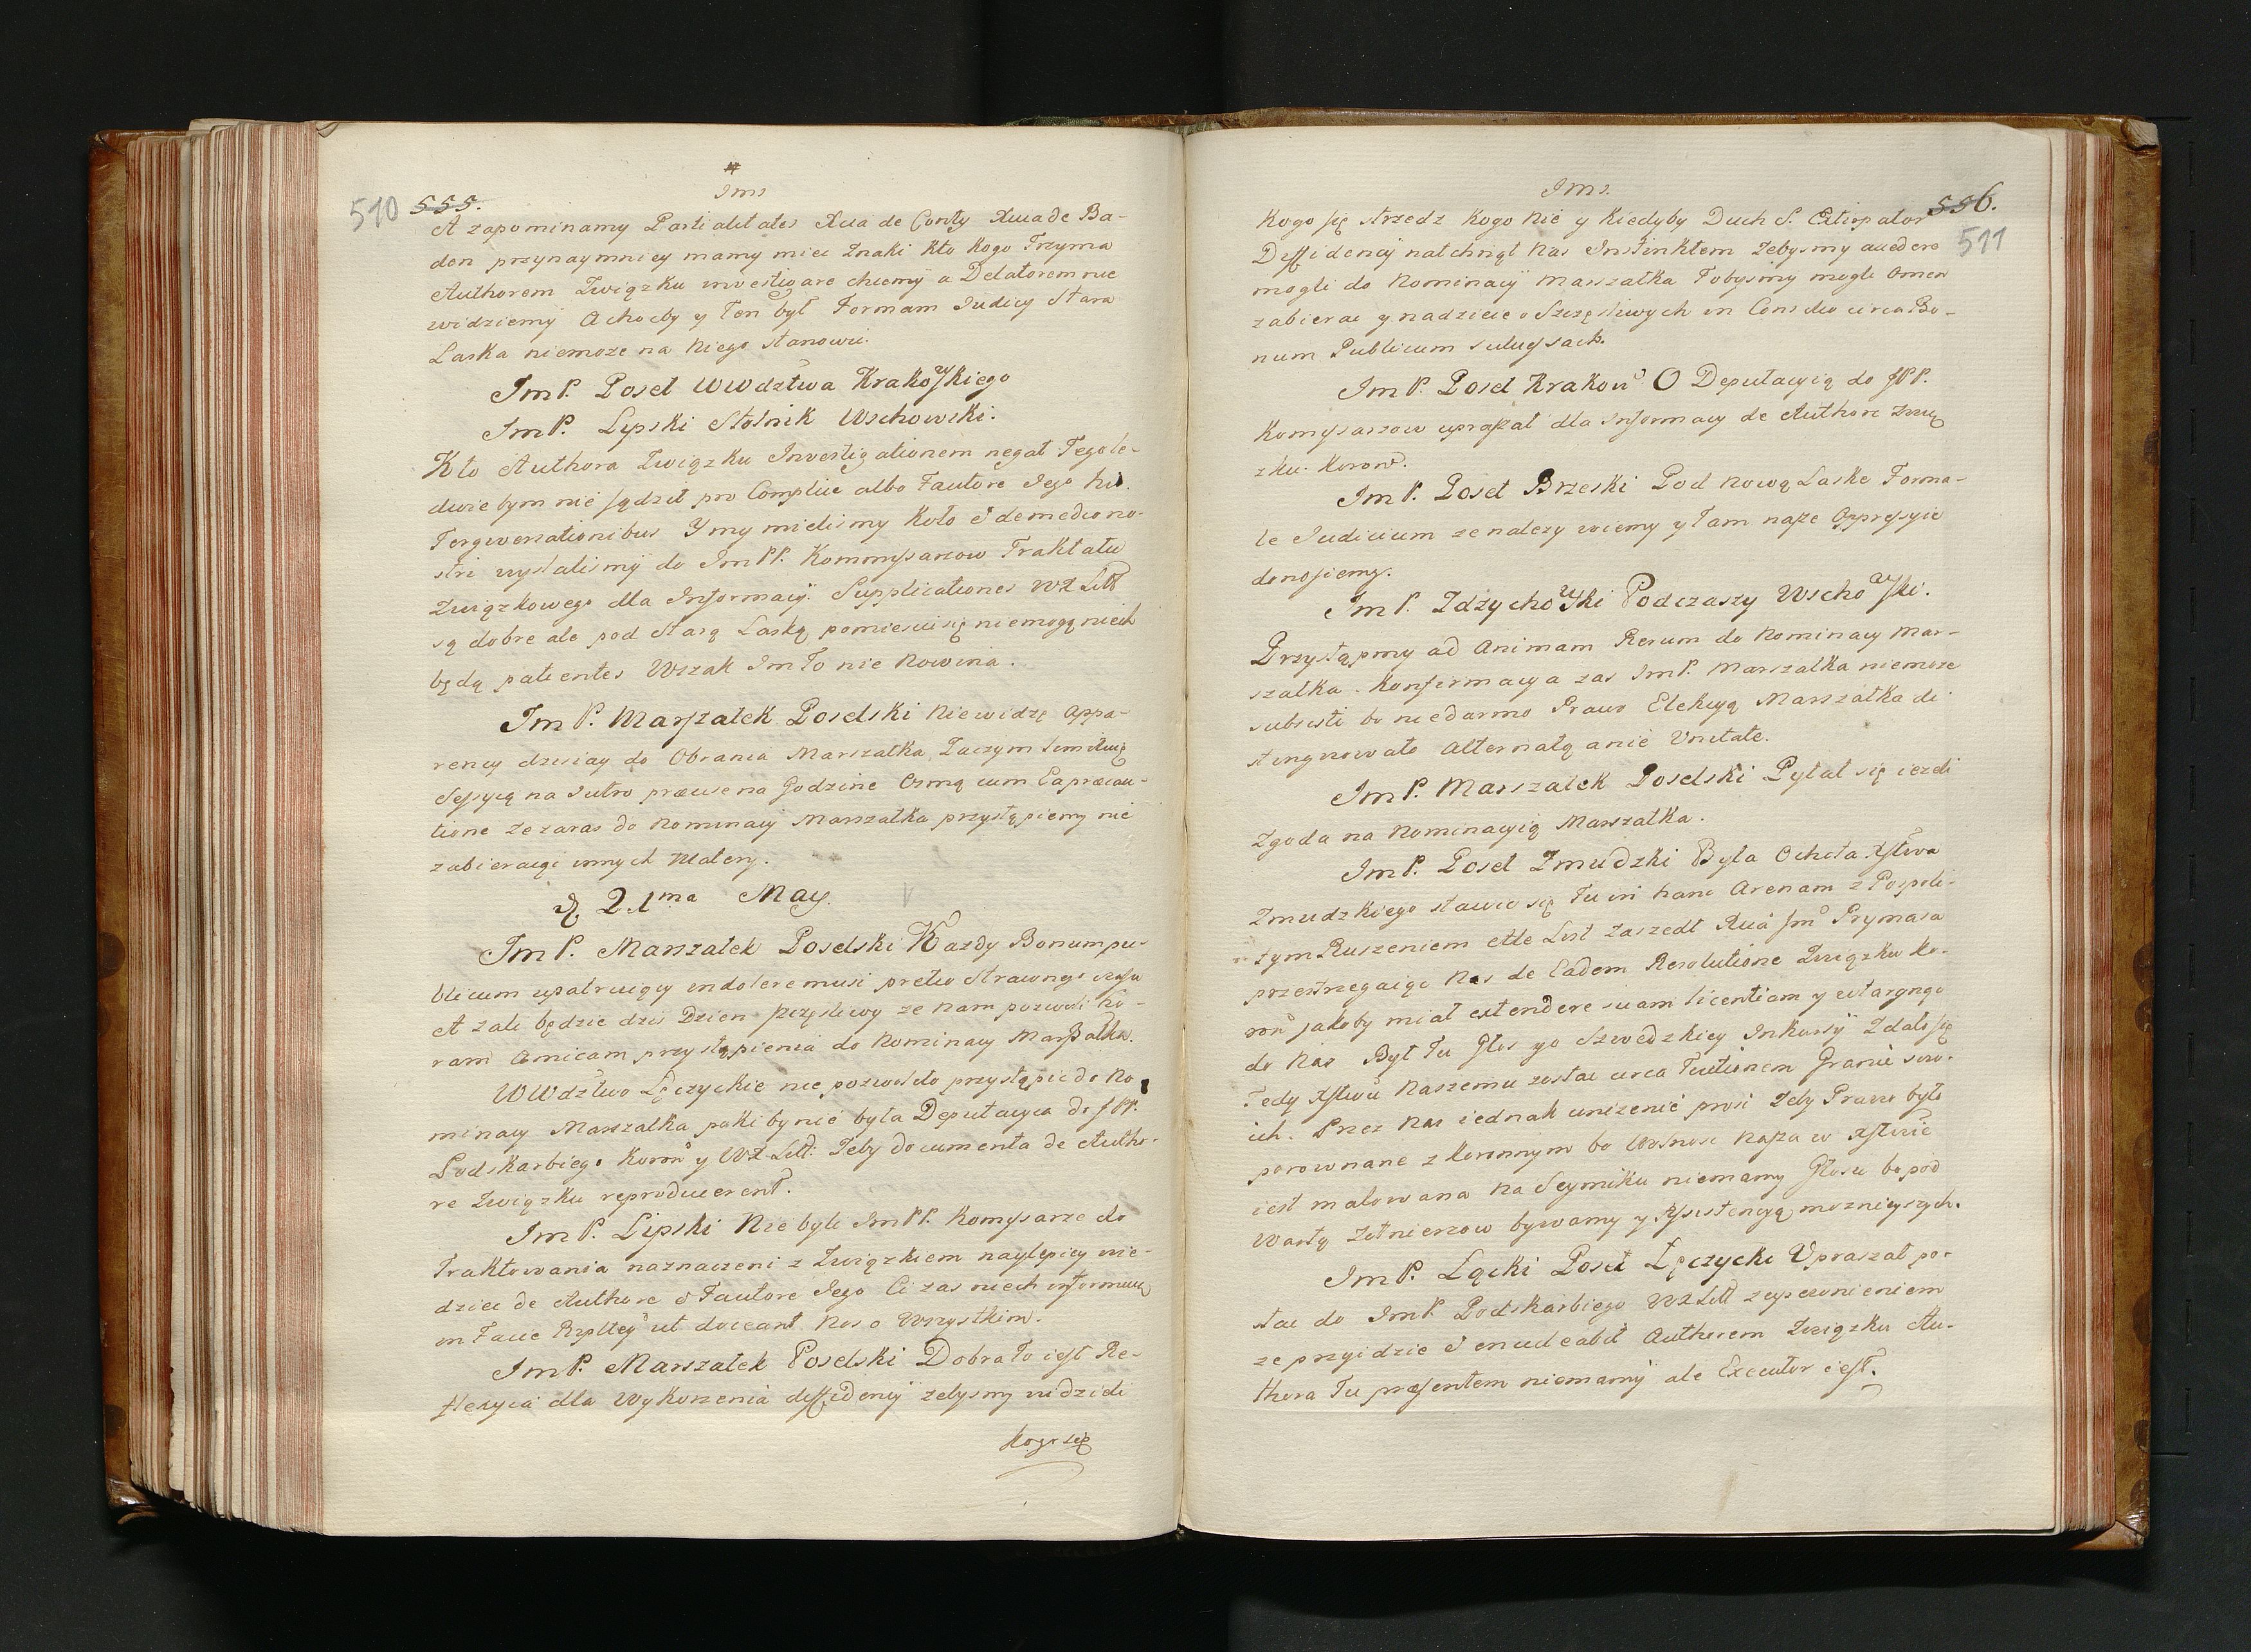 Jms
510 555.
A zapominamy Partialitates Xcia de Conty Xcia de Ba-
den przynaymniey mamy miec Znaki Kto Kogo Trzyma
Authorem Związku investigare chcemy a Delatorem nie
widziemy A choćby y Ten był Formam Judicy Stara
Laska niemoze na Niego stanowic.
Jm P. Poseł WWdztwa Krakowskiego
Jm P. Lipski Stolnik Wschowski.
Kto Authora Związku Investigationem negat Tego le-
dwie bym nie sądził pro Complice albo Fautore Jego his
Tergiversationibus Y my mielismy Koło è de medio no-
stri wysłalismy do Jm PP. Kommyssarzow Traktatu
Związkowego dla Informacy. Supplicationes WX Litt
są dobre ale pod Starą Laską pomiescić się niemogą niech
będą patientes Wszak Im To nie Nowina.
Jm P. Marszałek Poselski Niewidzę appa-
rency dzisiay do Obrania Marszałka, Zaczym limituię
Sessyią na Jutro præcise na Godzine Osmą cum Ea præcau-
tione że zaraz do Nominacy Marszałka przystąpiemy nie
zabieraiąc innych Matery.
D. 21ma May.
Jm P. Marszałek Poselski Kazdy Bonum pu-
blicum upatruiący indolere musi pretio Strawnego czasu
A zali będzie dzis Dzien szczęsliwy ze nam pozwoli ho-
ram Amicam przystąpienia do Nominacy Marszałka.
WWdztwo Łęczyckie nie pozwoliło przystąpic do No-
minacy Marszałka poki by nie była Deputacya do JPP.
Podskarbiego Koron y WX Litt: Zeby documenta de Autho-
re Związku reproducerent.
Jm P. Lipski Nie byli Jm PP. Komyssarze do
Traktowania naznaczeni z Związkiem naylepiey wie-
dziec de Authore & Fautore Jego Ci zas niech informuią
in Facie Rzpltey ut doceant Nos o Wszystkim.
Jm P. Marszałek Poselski Dobra To iest Re-
flexyia dla Wykorzenia diffidency zebysmy widzieli
Kogo się
Jms.
556.
511
Kogo się strzedz Kogo Nie y Kiedyby Duch S. Extirpator
Diffidency natchnął Nas Instinktem Zebysmy accedere
mogli do Nominacy Marszałka Tobysmy mogli Omen
zabierac y nadzieie o Szczęsliwych in Consilio circa Bo-
num Publicum sukcessach.
Jm P. Poseł Krakow O Deputacyią do JPP.
Komyssarzow upraszał dla Informacy de Authore Zwią
zku. Koron.
Jm P. Poseł Brzeski Pod Nową Laske Forma-
le Judicium ze nalezy wiemy y Tam nasze Oppressyie
donosiemy.
Jm P. Zdzychowski Podczaszy Wschowski.
Przystąpmy ad Animam Rerum do Nominacy Mar-
szałka. Konfirmacya zas Jm P. Marszałka niemoze
subsisti bo niedarmo Prawo Elekcyą Marszałka di
stingwowało Alternatą a nie Unitate.
Jm P. Marszałek Poselski Pytał się iezeli
Zgoda na Nominacyią Marszałka.
Jm P. Poseł Zmudzki Była Ochota Xstwa
Zmudzkiego stawic się Tu in hanc Arenam z Pospoli-
tym Ruszeniem ale List zaszedł Xcia Jm Prymasa
przestrzegaiąc Nas de Eadem Resolutione Związku Ko-
ron jakoby miał extendere suam licentiam y wtargnąc
do Nas Był Tu Głos y o Szwedzkiey Inkursy Zdało się
Tedy Xstwu Naszemu zostac circa Tuitionem Granic swo-
ich. Przez Nas iednak unizenie prosi Zeby Prawo było
porownane z Koronnym bo Wolnosc Nasza w Xstwie
iest malowana Na Seymiku niemamy Głosu bo pod
Wartą Zołnierzow bywamy y Assistencyą moznieyszych.
Jm P. Łącki Poseł Łęczycki Upraszał po-
stac do Jm P. Podskarbiego WX Litt z upewnieniem
ze przyidzie & enucleabit Authorem Związku Au-
thora Tu præsentem niemamy ale Executor iest.